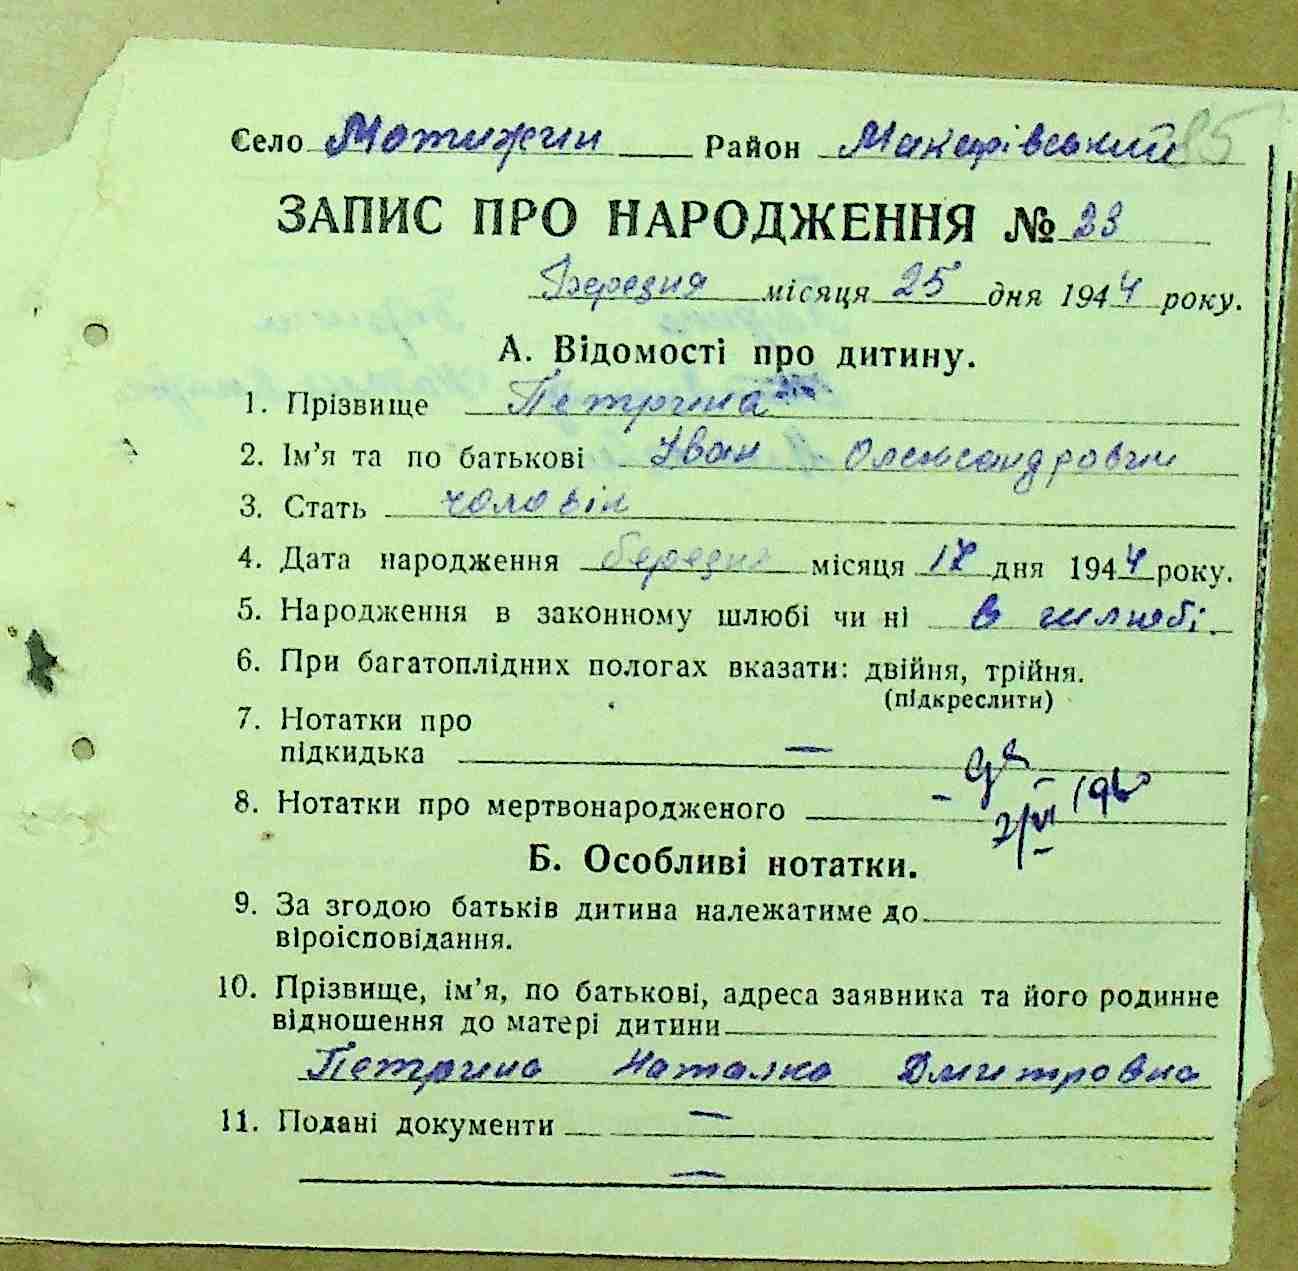 Село Мотижин Район Макарівський 85
ЗАПИС ПРО НАРОДЖЕННЯ № 23
Березня місяця 25 дня 1944 року.
А. Відомості про дитину.
1. Прізвище Петрина
2. Ім'я та по батькові Іван Олександрович
3. Стать чоловіч
4. Дата народження березня місяця дня 1944 року.
5. Народження в законному шлюбі чи ні в шлюбі.
6. При багатоплідних пологах вказати: двійня, трійня.
(підкреслити)
7. Нотатки про
підкидька —
8. Нотатки про мертвонародженого –
Б. Особливі нотатки.
9. За згодою батьків дитина належатиме до
віроісповідання.
10. Прізвище, ім'я, по батькові, адреса заявника та його родинне
відношення до матері дитини
Петрина Наталка Дмитровна
11. Подані документи —
—